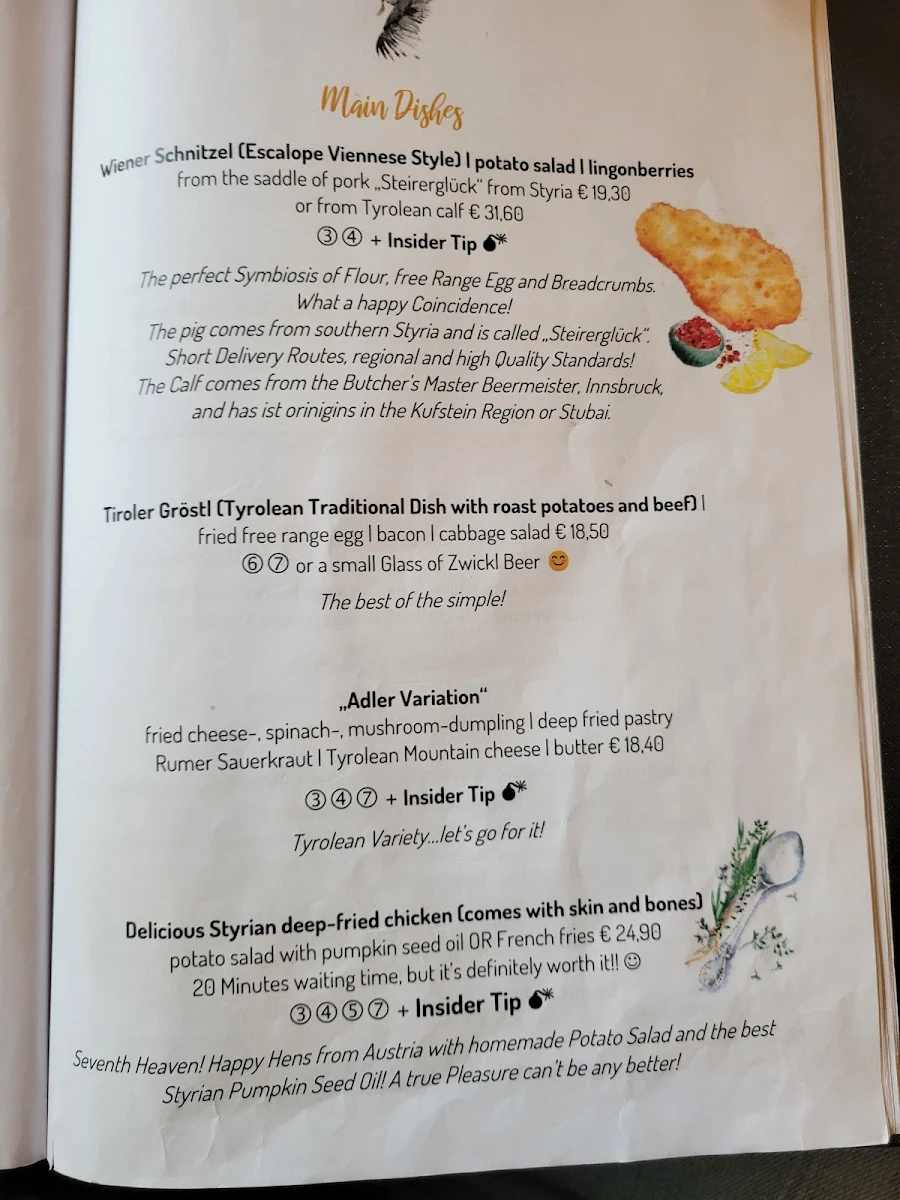 Main Dishes
Wiener Schnitzel (Escalope Viennese Style) | potato salad | lingonberries
from the saddle of pork „Steirerglück“ from Styria € 19,30
or from Tyrolean calf € 31,60
③ ④ + Insider Tip 💣
The perfect Symbiosis of Flour, free Range Egg and Breadcrumbs.
What a happy Coincidence!
The pig comes from southern Styria and is called „Steirerglück“.
Short Delivery Routes, regional and high Quality Standards!
The Calf comes from the Butcher's Master Beermeister, Innsbruck,
and has ist orinigins in the Kufstein Region or Stubai.
Tiroler Gröstl (Tyrolean Traditional Dish with roast potatoes and beef) |
fried free range egg | bacon | cabbage salad € 18,50
⑥ ⑦ or a small Glass of Zwickl Beer 😊
The best of the simple!
„Adler Variation“
fried cheese-, spinach-, mushroom-dumpling | deep fried pastry
Rumer Sauerkraut | Tyrolean Mountain cheese | butter € 18,40
③ ④ ⑦ + Insider Tip 💣
Tyrolean Variety...let's go for it!
Delicious Styrian deep-fried chicken (comes with skin and bones)
potato salad with pumpkin seed oil OR French fries € 24,90
20 Minutes waiting time, but it's definitely worth it!! ☺
③ ④ ⑤ ⑦ + Insider Tip 💣
Seventh Heaven! Happy Hens from Austria with homemade Potato Salad and the best
Styrian Pumpkin Seed Oil! A true Pleasure can't be any better!